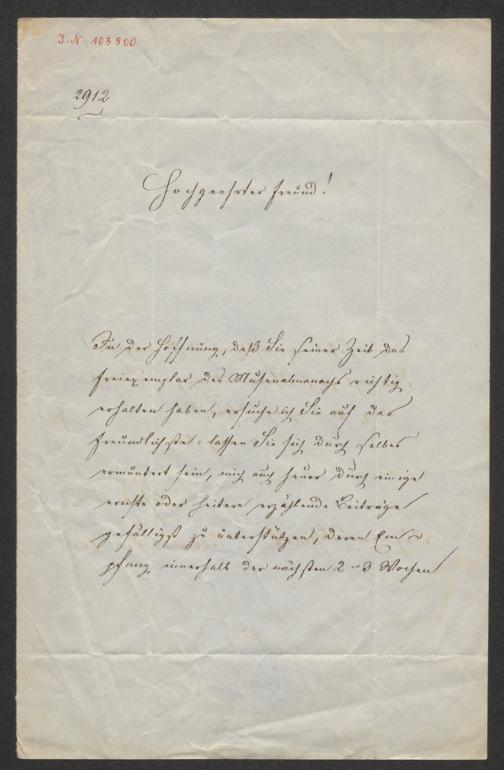 I.N. 103900
2912
Hochgeehrter Freund!
In der Hoffnung, daß Sie seiner Zeit das
Freiexemplar des Musenalmanachs richtig
erhalten haben, ersuche ich Sie auf das
Freundlichste: lassen Sie sich durch selbes
ermuntert sein, mich auch heuer durch einige
ernste oder heitere erzählende Beiträge
gefälligst zu unterstützen, deren Em-
pfang innerhalb der nächsten 2-3 Wochen